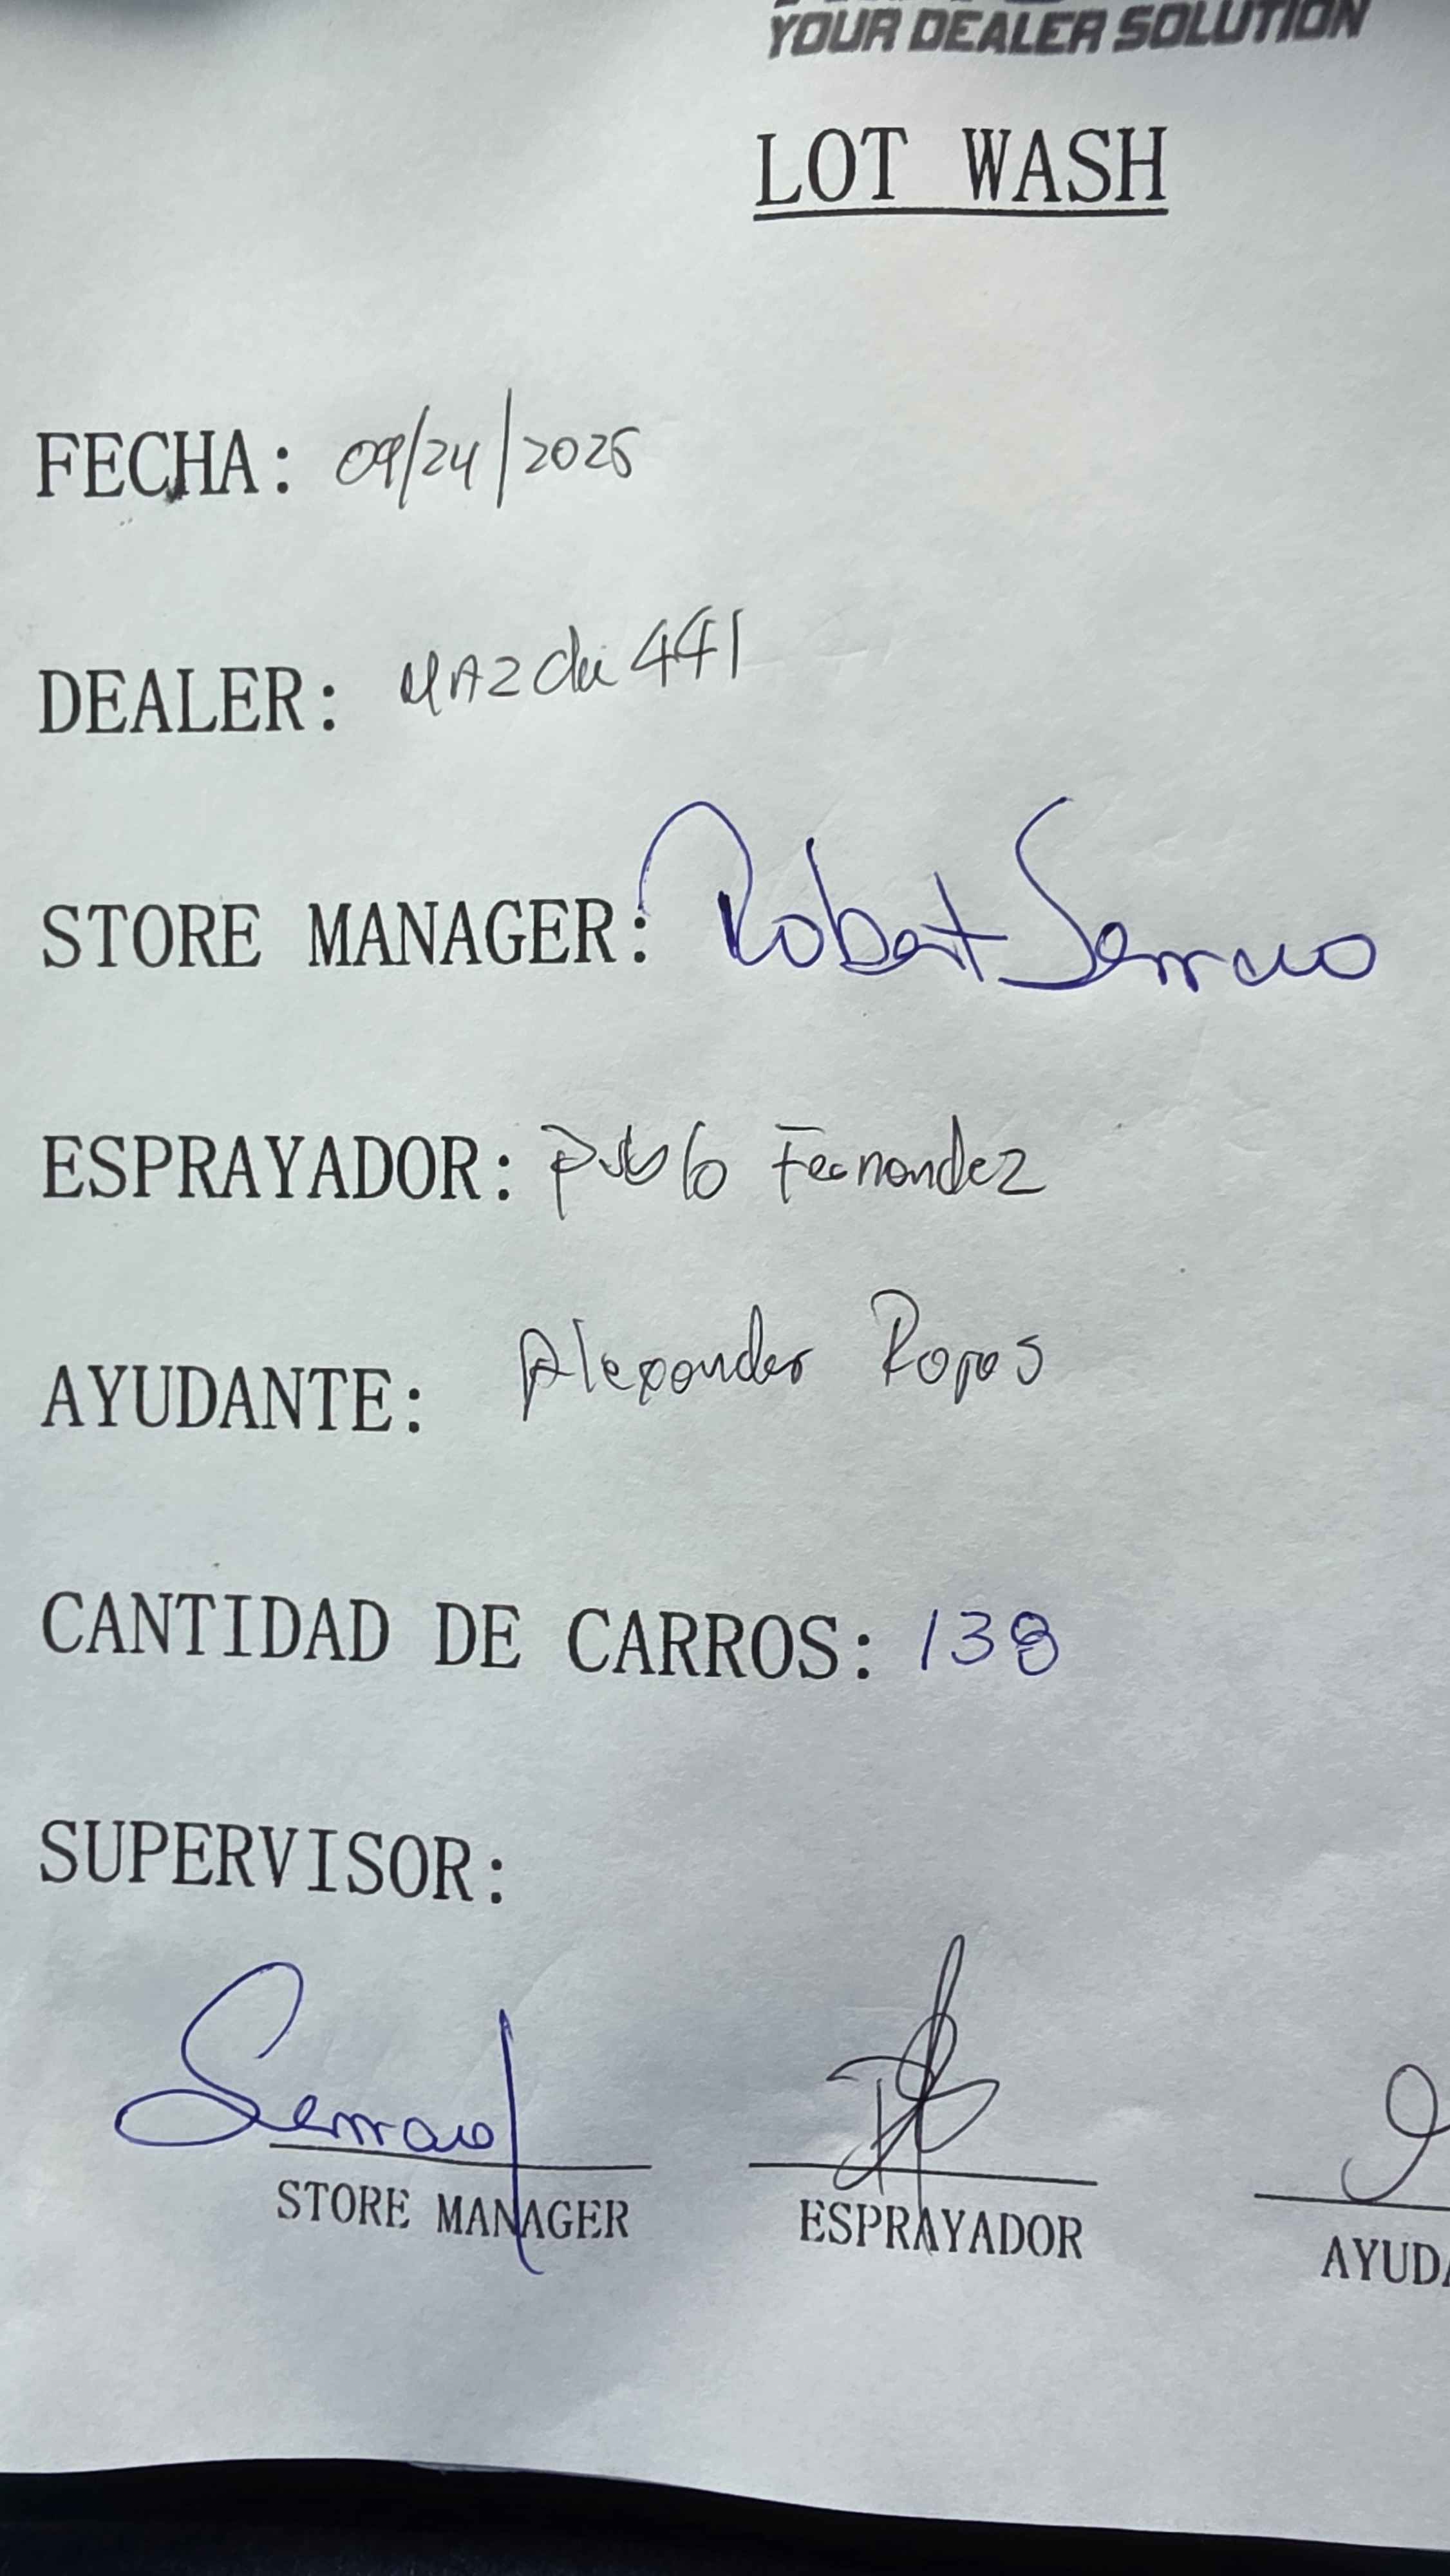 YOUR DEALER SOLUTION
LOT WASH
FECHA: 09/24/2025
DEALER: MAZda 441
STORE MANAGER: Robert Serrano
ESPRAYADOR: Pablo Fernandez
AYUDANTE: Alexander Rojas
CANTIDAD DE CARROS: 138
SUPERVISOR:
Serrano
STORE MANAGER ESPRAYADOR AYUDA